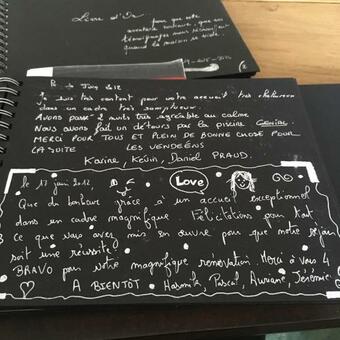 Livre d'Or
pour que cette
aventure continue, que vos
témoignages nous réchauffent
quand la maison se vide.
Je suis très content pour votre accueil très chaleureux
dans un cadre très somptueux.
Avons passé 2 nuits très agréable au calme
Nous avons fait un détours par la piscine Géniale
MERCI POUR TOUS ET PLEIN DE BONNE CHOSE POUR
LA SUITE LES VENDÉENS
Karine, Kévin, Daniel PRAUD.
le 17 juin 2012 Love
Que du bonheur grâce à un accueil exceptionnel
dans un cadre magnifique. Félicitations pour tout
ce que vous avez mis en œuvre pour que notre séjour
soit une réussite!
BRAVO pour votre magnifique rénovation. Merci à vous 4
A BIENTÔT Pascal, Auriane, Jérémie.